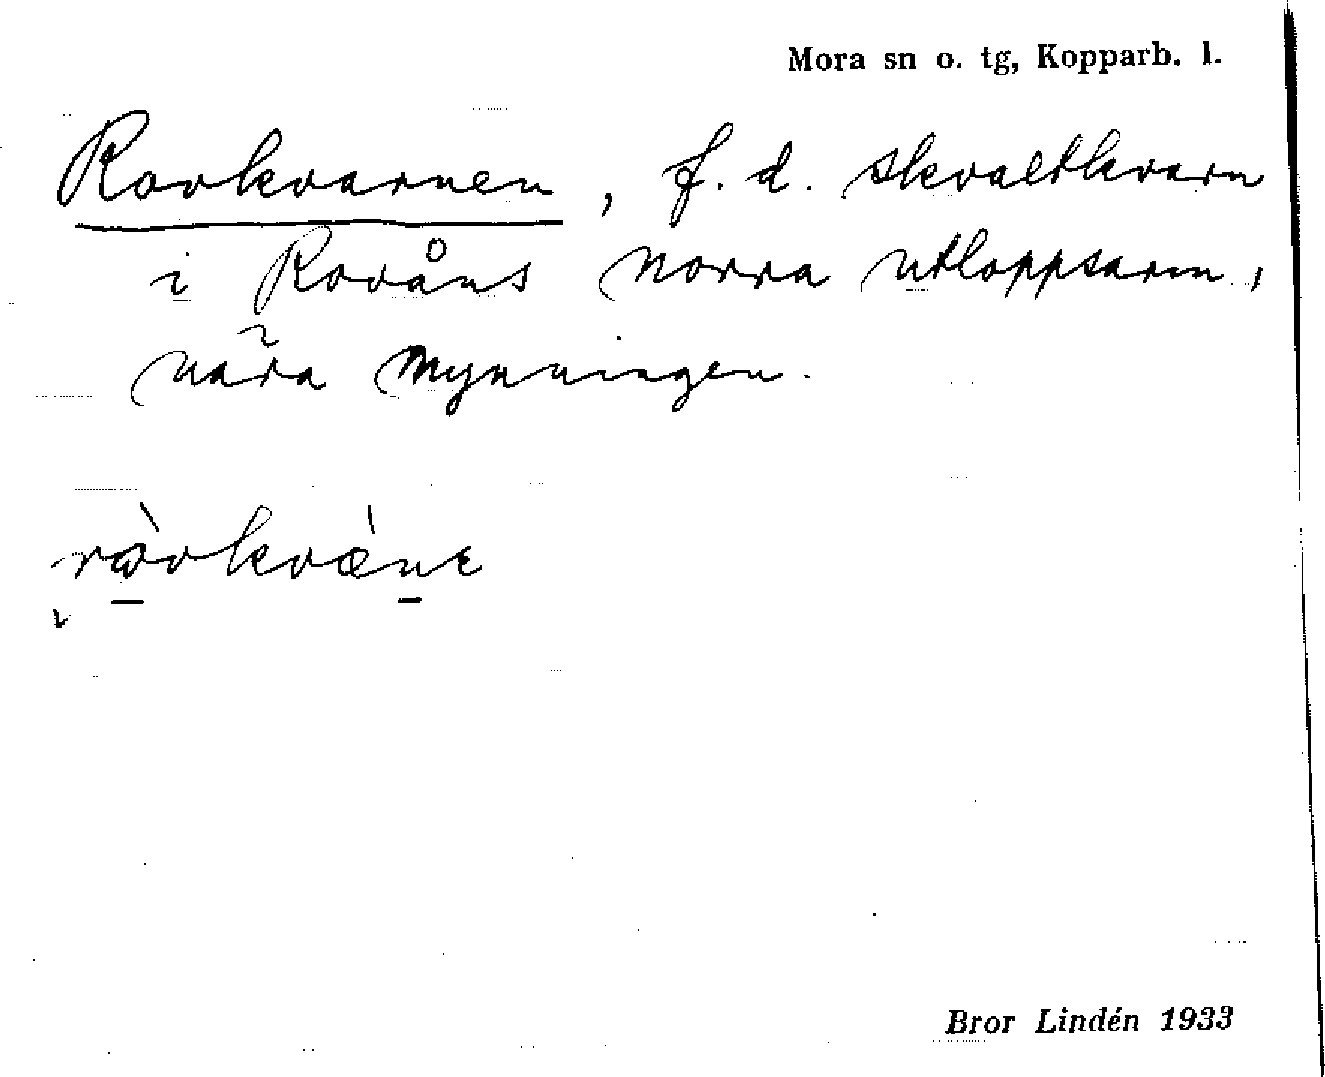 Mora sn o. tg, Kopparb. l.
Rovkvarnen, f. d. skvaltkvarn
i Rovåns norra utloppsarm,
nära mynningen.
rωvkvæne
Bror Lindén 1933